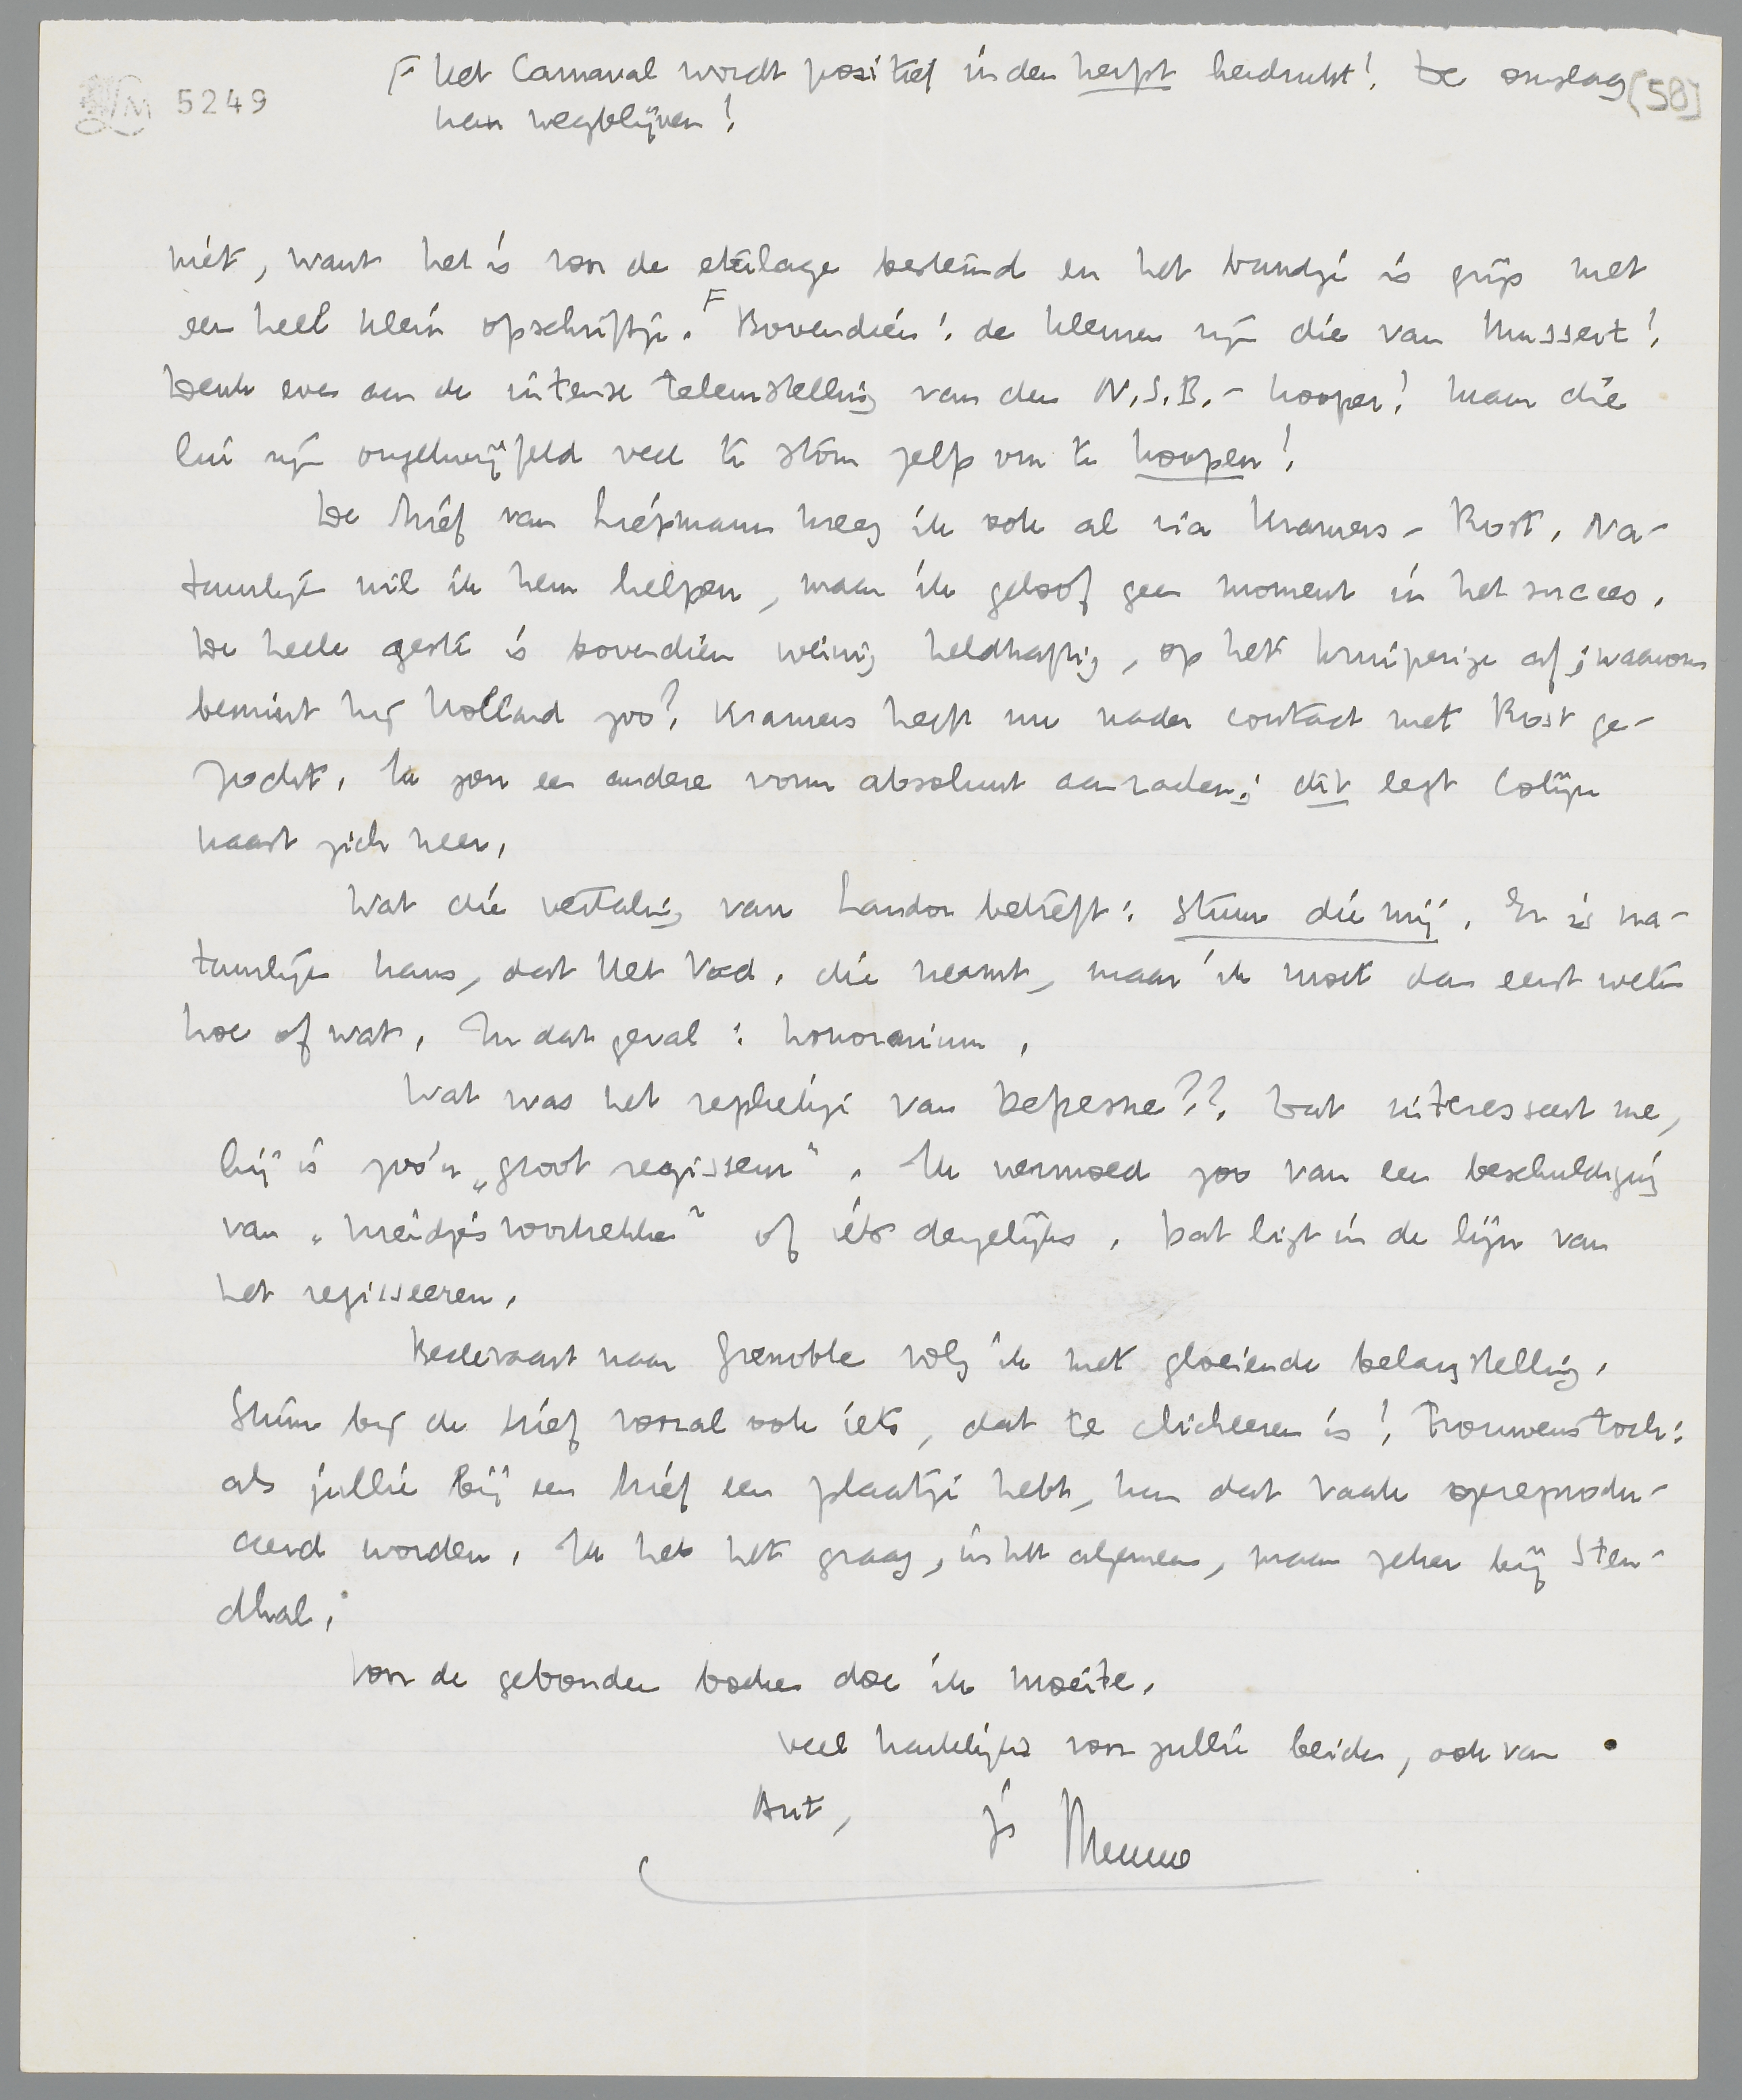 F Het Carnaval wordt positief in den herfst herdrukt! De omslag
kan wegblijven!
5249
(58)
niet, want het is voor de etalage bestemd en het bandje is grijs met
een heel klein opschriftje. F Bovendien: de kleuren zijn die van Mussert!
Denk even aan de intense teleurstelling van den N.S.B.-kooper! Maar die
lui zijn ongetwijfeld veel te stom zelfs om te koopen!
De brief van Liepmann kreeg ik ook al via Kramers-Rost. Na-
tuurlijk wil ik hem helpen, maar ik geloof geen moment in het succes.
De heele geste is bovendien weinig heldhaftig, op het kruiperige af; waarom
bemint hij Holland zoo? Kramers heeft nu nader contact met Rost ge-
zocht. Ik zou een andere vorm absoluut aanraden; dit legt Colijn
naast zich neer.
Wat die vertaling van Landor betreft: stuur die mij. Er is na-
tuurlijk kans, dat Het Vad. die neemt, maar ik moet dan eerst weten
hoe of wat. In dat geval: honorarium.
Wat was het replietje van Defresne?? Dat interesseert me,
hij is zoo'n „groot regisseur". Ik vermoed zoo van een beschuldiging
van „meidjes voortrekken" of iets dergelijks. Dat ligt in de lijn van
het regisseeren.
Bedevaart naar Grenoble volg ik met gloeiende belangstelling.
Stuur bij de brief vooral ook iets, dat te clicheeren is! Trouwens toch:
als jullie bij een brief een plaatje hebt, kan dat vaak gereprodu-
ceerd worden. Ik heb het graag, in het algemeen, maar zeker bij Sten-
dhal.
Voor de gebonden boeken doe ik moeite.
Veel hartelijks voor jullie beiden, ook van
Ant,      je Menno